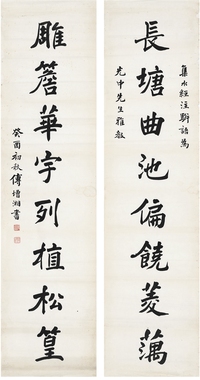 長塘曲池偏饒菱藕
集水經注斷語為
先中先生雅教
雕簷華宇列植松篁
癸酉初秋傅增湘書